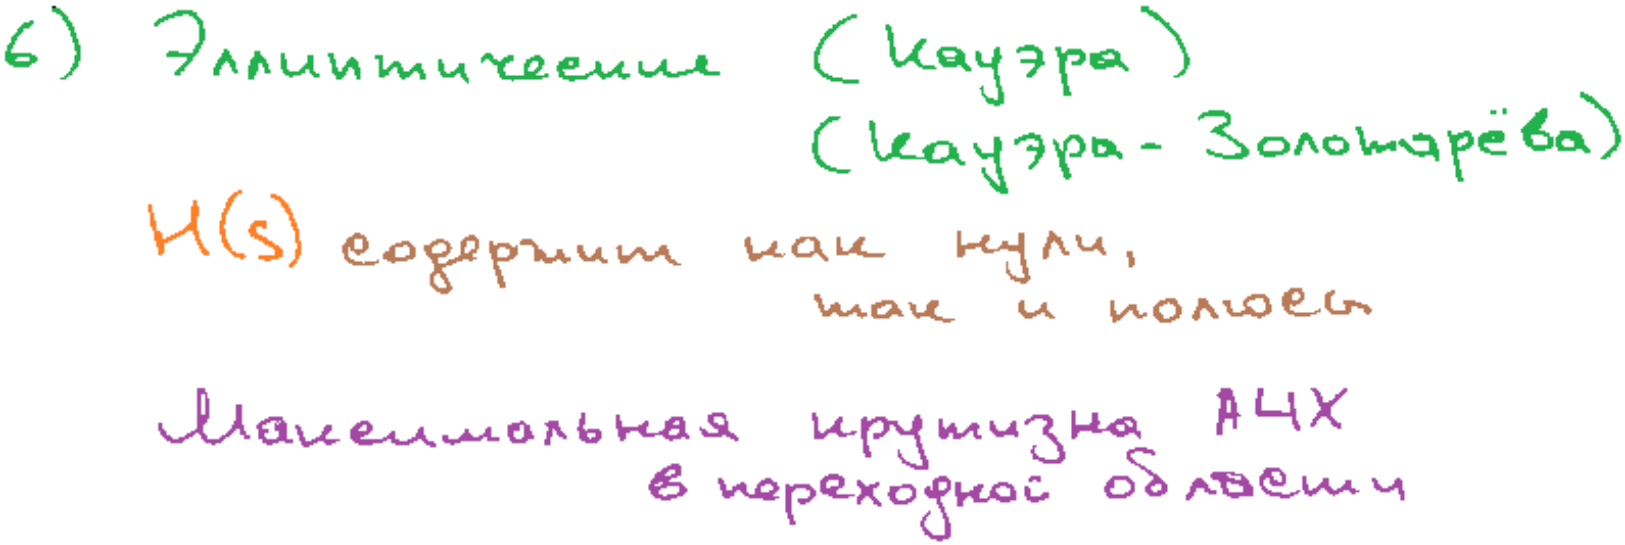 6) Эллиптические (Кауэра)
(Кауэра - Золотарёва)
H(s) содержит как нули,
так и полюсы
Максимальная крутизна АЧХ
в переходной области